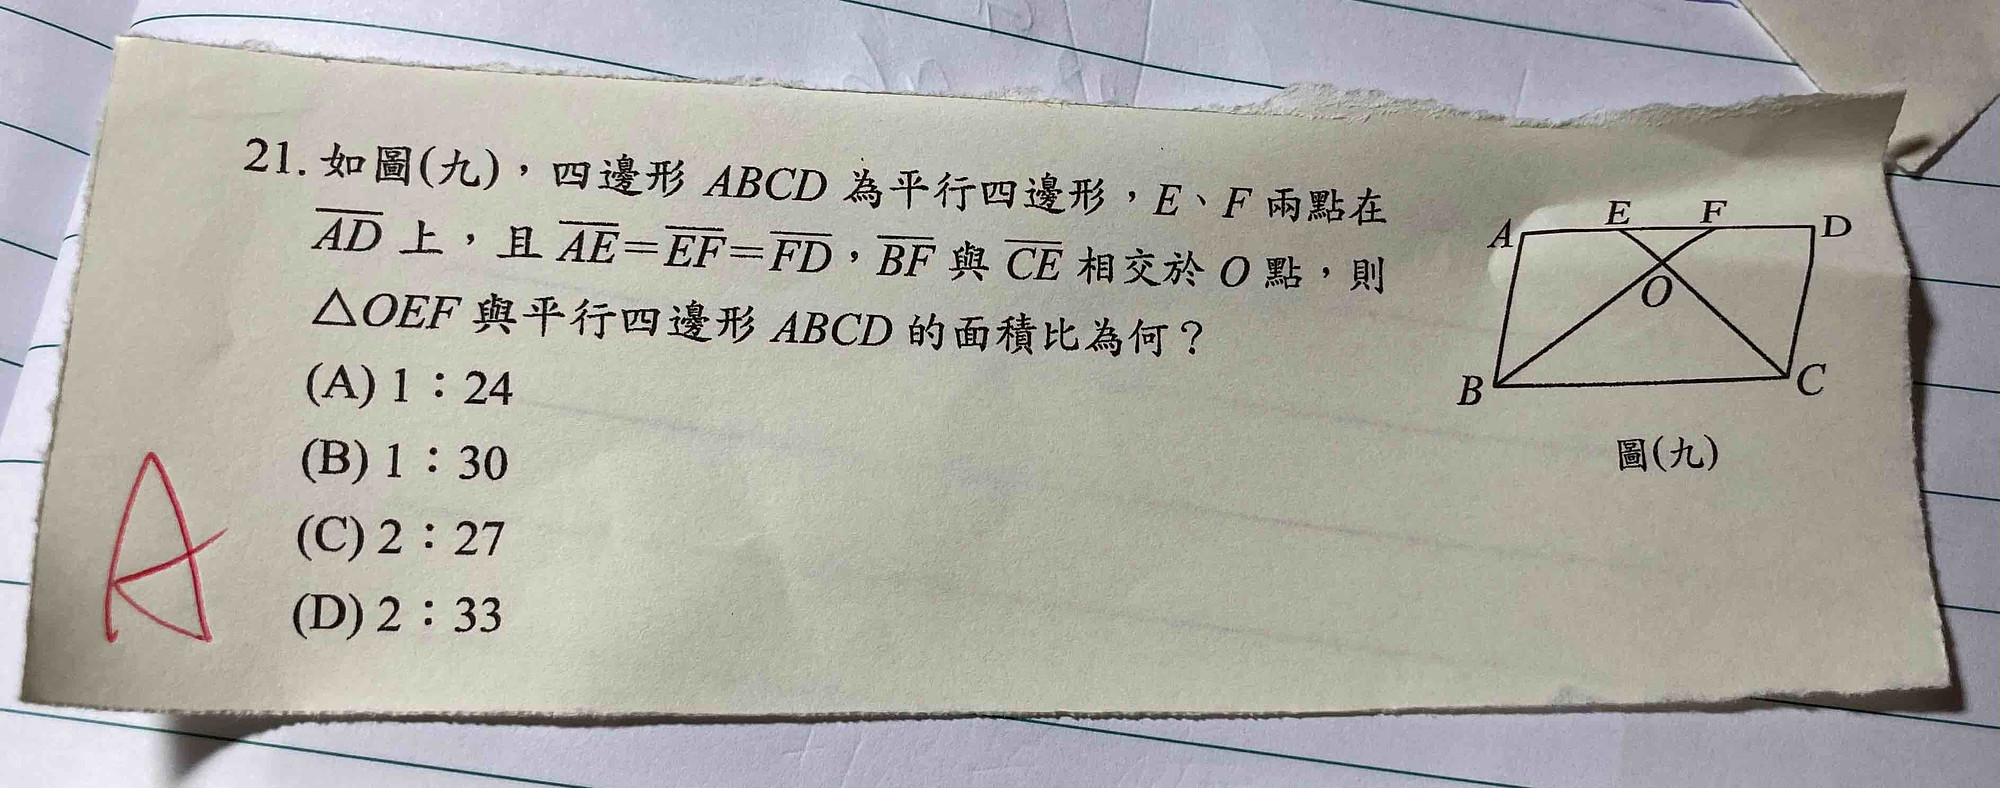 21. 如圖(九)，四邊形 ABCD 為平行四邊形，E、F 兩點在
AD 上，且 AE=EF=FD，BF 與 CE 相交於 O 點，則
△OEF 與平行四邊形 ABCD 的面積比為何？
(A) 1：24
(B) 1：30
(C) 2：27
(D) 2：33
A
A E F D
O
B C
圖(九)